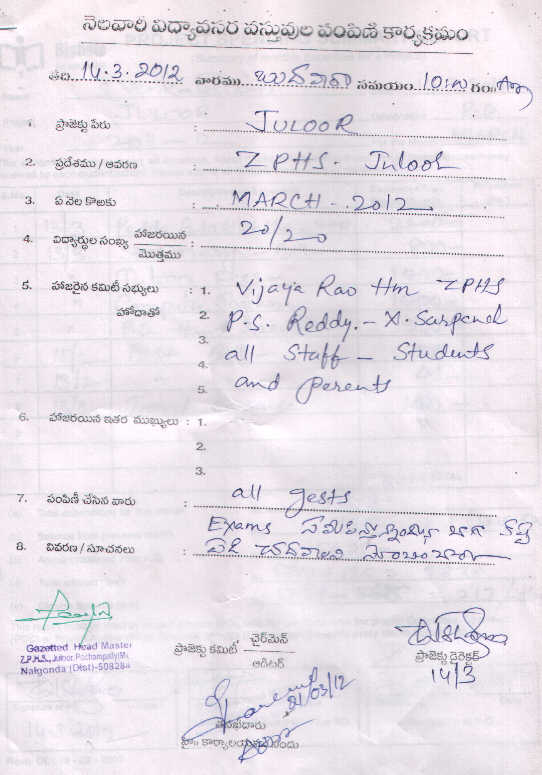 నెలవారి విద్యావసర వస్తువుల పంపిణి కార్యక్రమం
తేది. 14.3.2012 వారము బుధవారం సమయం 10:00 గం॥
1. ప్రాజెక్టు పేరు : JULOOR
2. ప్రదేశము / ఆవరణ : ZPHS. Juloor
3. ఏ నెల కొఱకు : MARCH - 2012
4. విద్యార్థుల సంఖ్య హాజరయిన / మొత్తము : 20/20
5. హాజరైన కమిటీ సభ్యులు : 1. Vijaya Rao Hm ZPHS
హోదాతో 2. P.S. Reddy. - X. Sarpanch
3.
4. all Staff - Students
5. and perents
6. హాజరయిన ఇతర ముఖ్యులు : 1.
2.
3.
7. పంపిణీ చేసిన వారు : all gests
Exams
8. వివరణ / సూచనలు :
Gazetted Head Master
Z.P.H.S., Juloor, Pochampally(M),
Nalgonda (Dist)-508284
ప్రాజెక్టు కమిటీ చైర్‌మెన్ / ఆడిటర్
ప్రాజెక్టు డైరెక్టర్
14/3
21/03/12